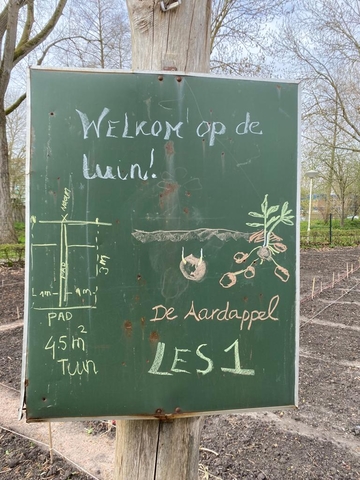 WELKOM op de
tuin!
3m
PAD
PAD
4.5 m²
Tuin
De Aardappel
LES 1